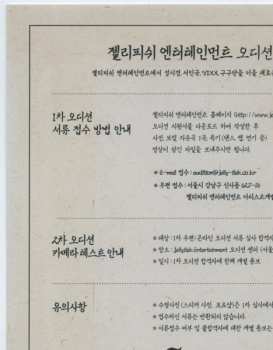 젤리피쉬 엔터테인먼트 오디션
젤리피쉬 엔터테인먼트에서 성시경, 서인국, VIXX, 구구단을 이을 새로운
1차 오디션
서류 접수 방법 안내
젤리피쉬 엔터테인먼트 홈페이지 (http://www.je
오디션 지원서를 다운로드 하여 작성한 후
사진, 보컬 자유곡 1곡, 특기 (댄스, 랩, 연기 중)
영상이 담긴 파일을 보내주시면 됩니다.
* E-mail 접수 : audition@jelly-fish.co.kr
* 우편 접수 : 서울시 강남구 삼성동
젤리피쉬 엔터테인먼트
2차 오디션
카메라 테스트 안내
* 대상 : 1차 우편/온라인 오디션 서류 심사 합격자
* 장소 : Jellyfish Entertainment 오디션 센터 (서울
* 일시 : 1차 오디션 합격자에 한해 개별 통보
유의사항
* 수정사진 (스티커 사진, 포토샵)은 1차 심사에서
* 접수하신 서류는 반환되지 않습니다.
* 서류접수 여부 및 불합격자에 대한 개별 통보는